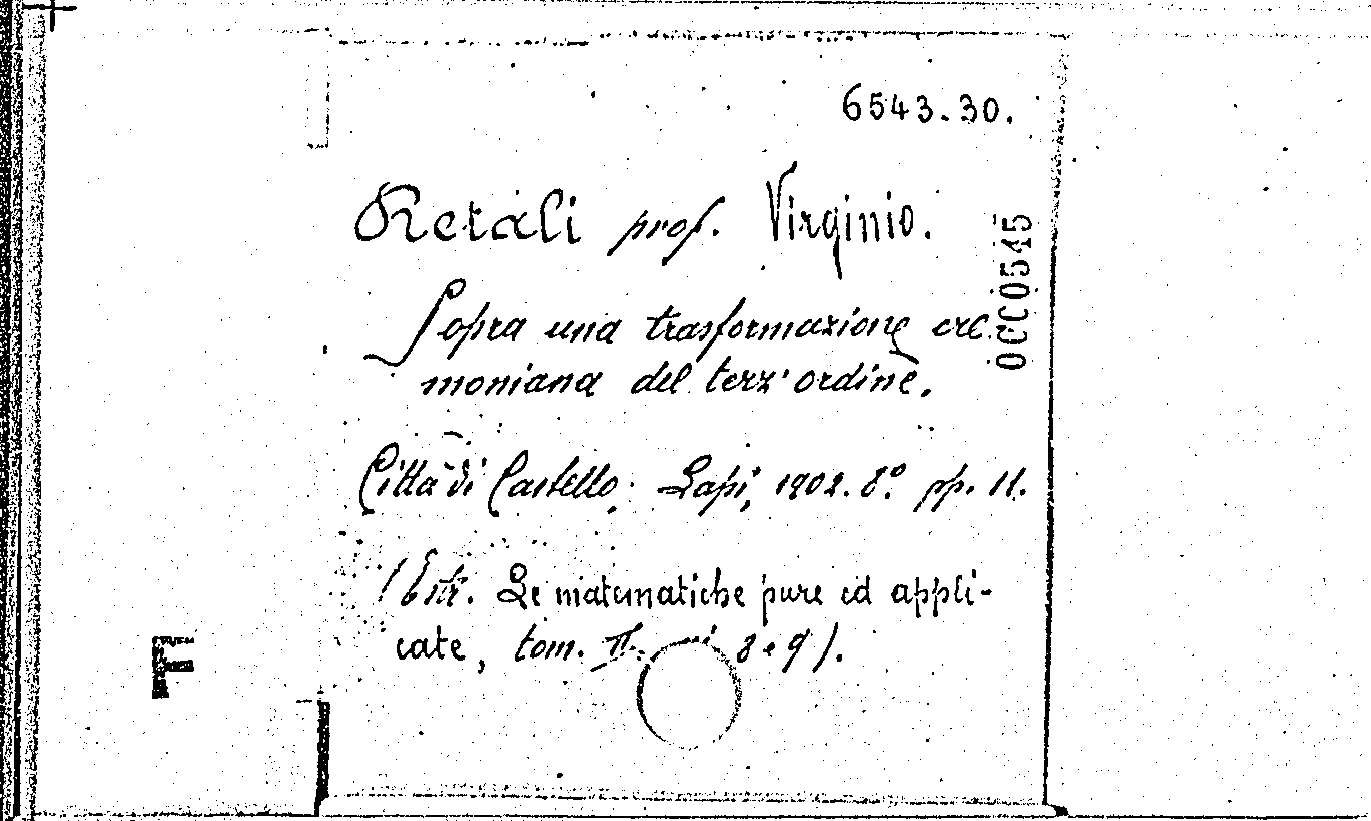 6543.30.
Retali prof. Virginio.
Sopra una trasformazione cre
moniana del terz'ordine.
Città di Castello. Lapi, 1902. 8º. pp. 11.
(Estr. Le matematiche pure ed appli-
cate, tom. II. 8 e 9).
OCC0545
F